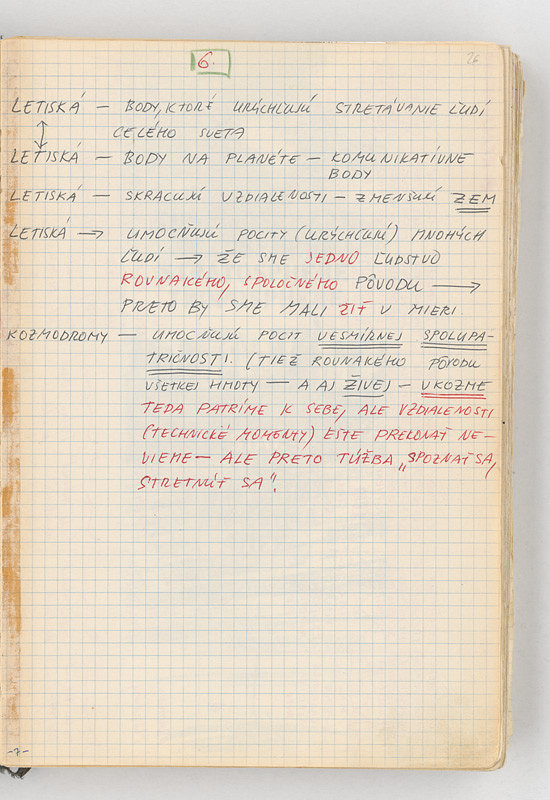 6.
26
LETISKÁ — BODY, KTORÉ URÝCHĽUJÚ STRETÁVANIE ĽUDÍ
CELÉHO SVETA
LETISKÁ — BODY NA PLANÉTE — KOMUNIKATÍVNE
BODY
LETISKÁ — SKRACUJÚ VZDIALENOSTI — ZMENŠUJÚ ZEM
LETISKÁ → UMOCŇUJÚ POCITY (URÝCHĽUJÚ) MNOHÝCH
ĽUDÍ → ŽE SME JEDNO ĽUDSTVO
ROVNAKÉHO, SPOLOČNÉHO PÔVODU →
PRETO BY SME MALI ŽIŤ V MIERI
KOZMODROMY — UMOCŇUJÚ POCIT VESMÍRNEJ SPOLUPA-
TRIČNOSTI. (TIEŽ ROVNAKÉHO PÔVODU
VŠETKEJ HMOTY — A AJ ŽIVEJ) — V KOZME
TEDA PATRÍME K SEBE, ALE VZDIALENOSTI
(TECHNICKÉ MOMENTY) EŠTE PREKONAŤ NE-
VIEME — ALE PRETO TÚŽBA „SPOZNAŤ SA,
STRETNÚŤ SA".
-7-